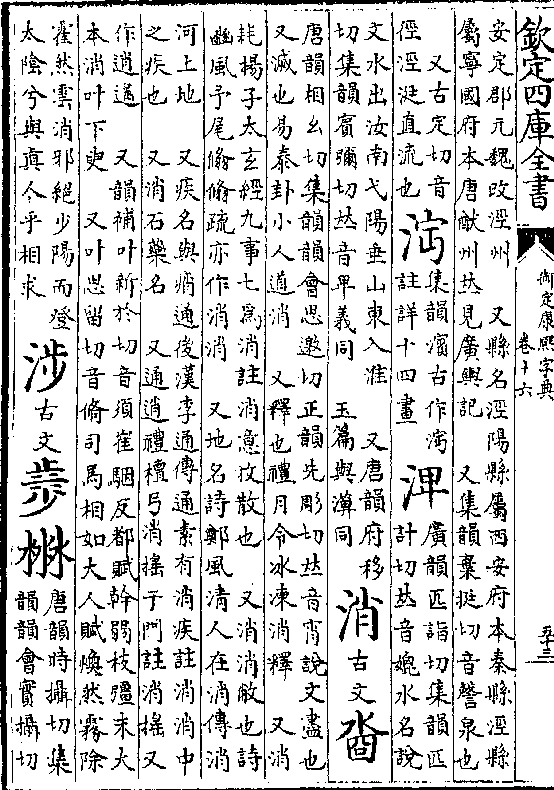 欽定四庫全書
御定康熙字典
卷十六
五十三
安定郡元魏改涇州　又縣名涇陽縣屬西安府本秦縣涇縣
屬寧國府本唐猷州𠀤見廣輿記　又集韻棄挺切音謦泉也
又古定切音徑涇涏直流也
㴿集韻濱古作㴿註詳十四畫
淠廣韻匹詣切集韻匹計切𠀤音媲水名說文水出汝南弋陽垂山東入淮　又唐韻府移
切集韻賓彌切𠀤音𤰞義同　玉篇與渒同
消古文𣶃
唐韻相幺切集韻韻會思邀切正韻先彫切𠀤音宵說文盡也
又滅也易泰卦小人道消　又釋也禮月令冰凍消釋　又消
耗楊子太玄經九事七爲消註消意放散也　又消消敝也詩
豳風予尾翛翛疏亦作消消　又地名詩鄭風清人在消傳消
河上地　又疾名與痟通後漢李通傳通素有消疾註消消中
之疾也　又消石藥名　又通逍禮檀弓消搖于門註消搖又
作逍遙　又韻補叶新於切音須崔駰反都賦幹弱枝彊末大
本消叶下臾　又叶思留切音脩司馬相如大人賦煥然霧除
霍然雲消邪絕少陽而登太陰兮與真人乎相求
涉古文𣥿𣻣唐韻時攝切集韻韻會實攝切